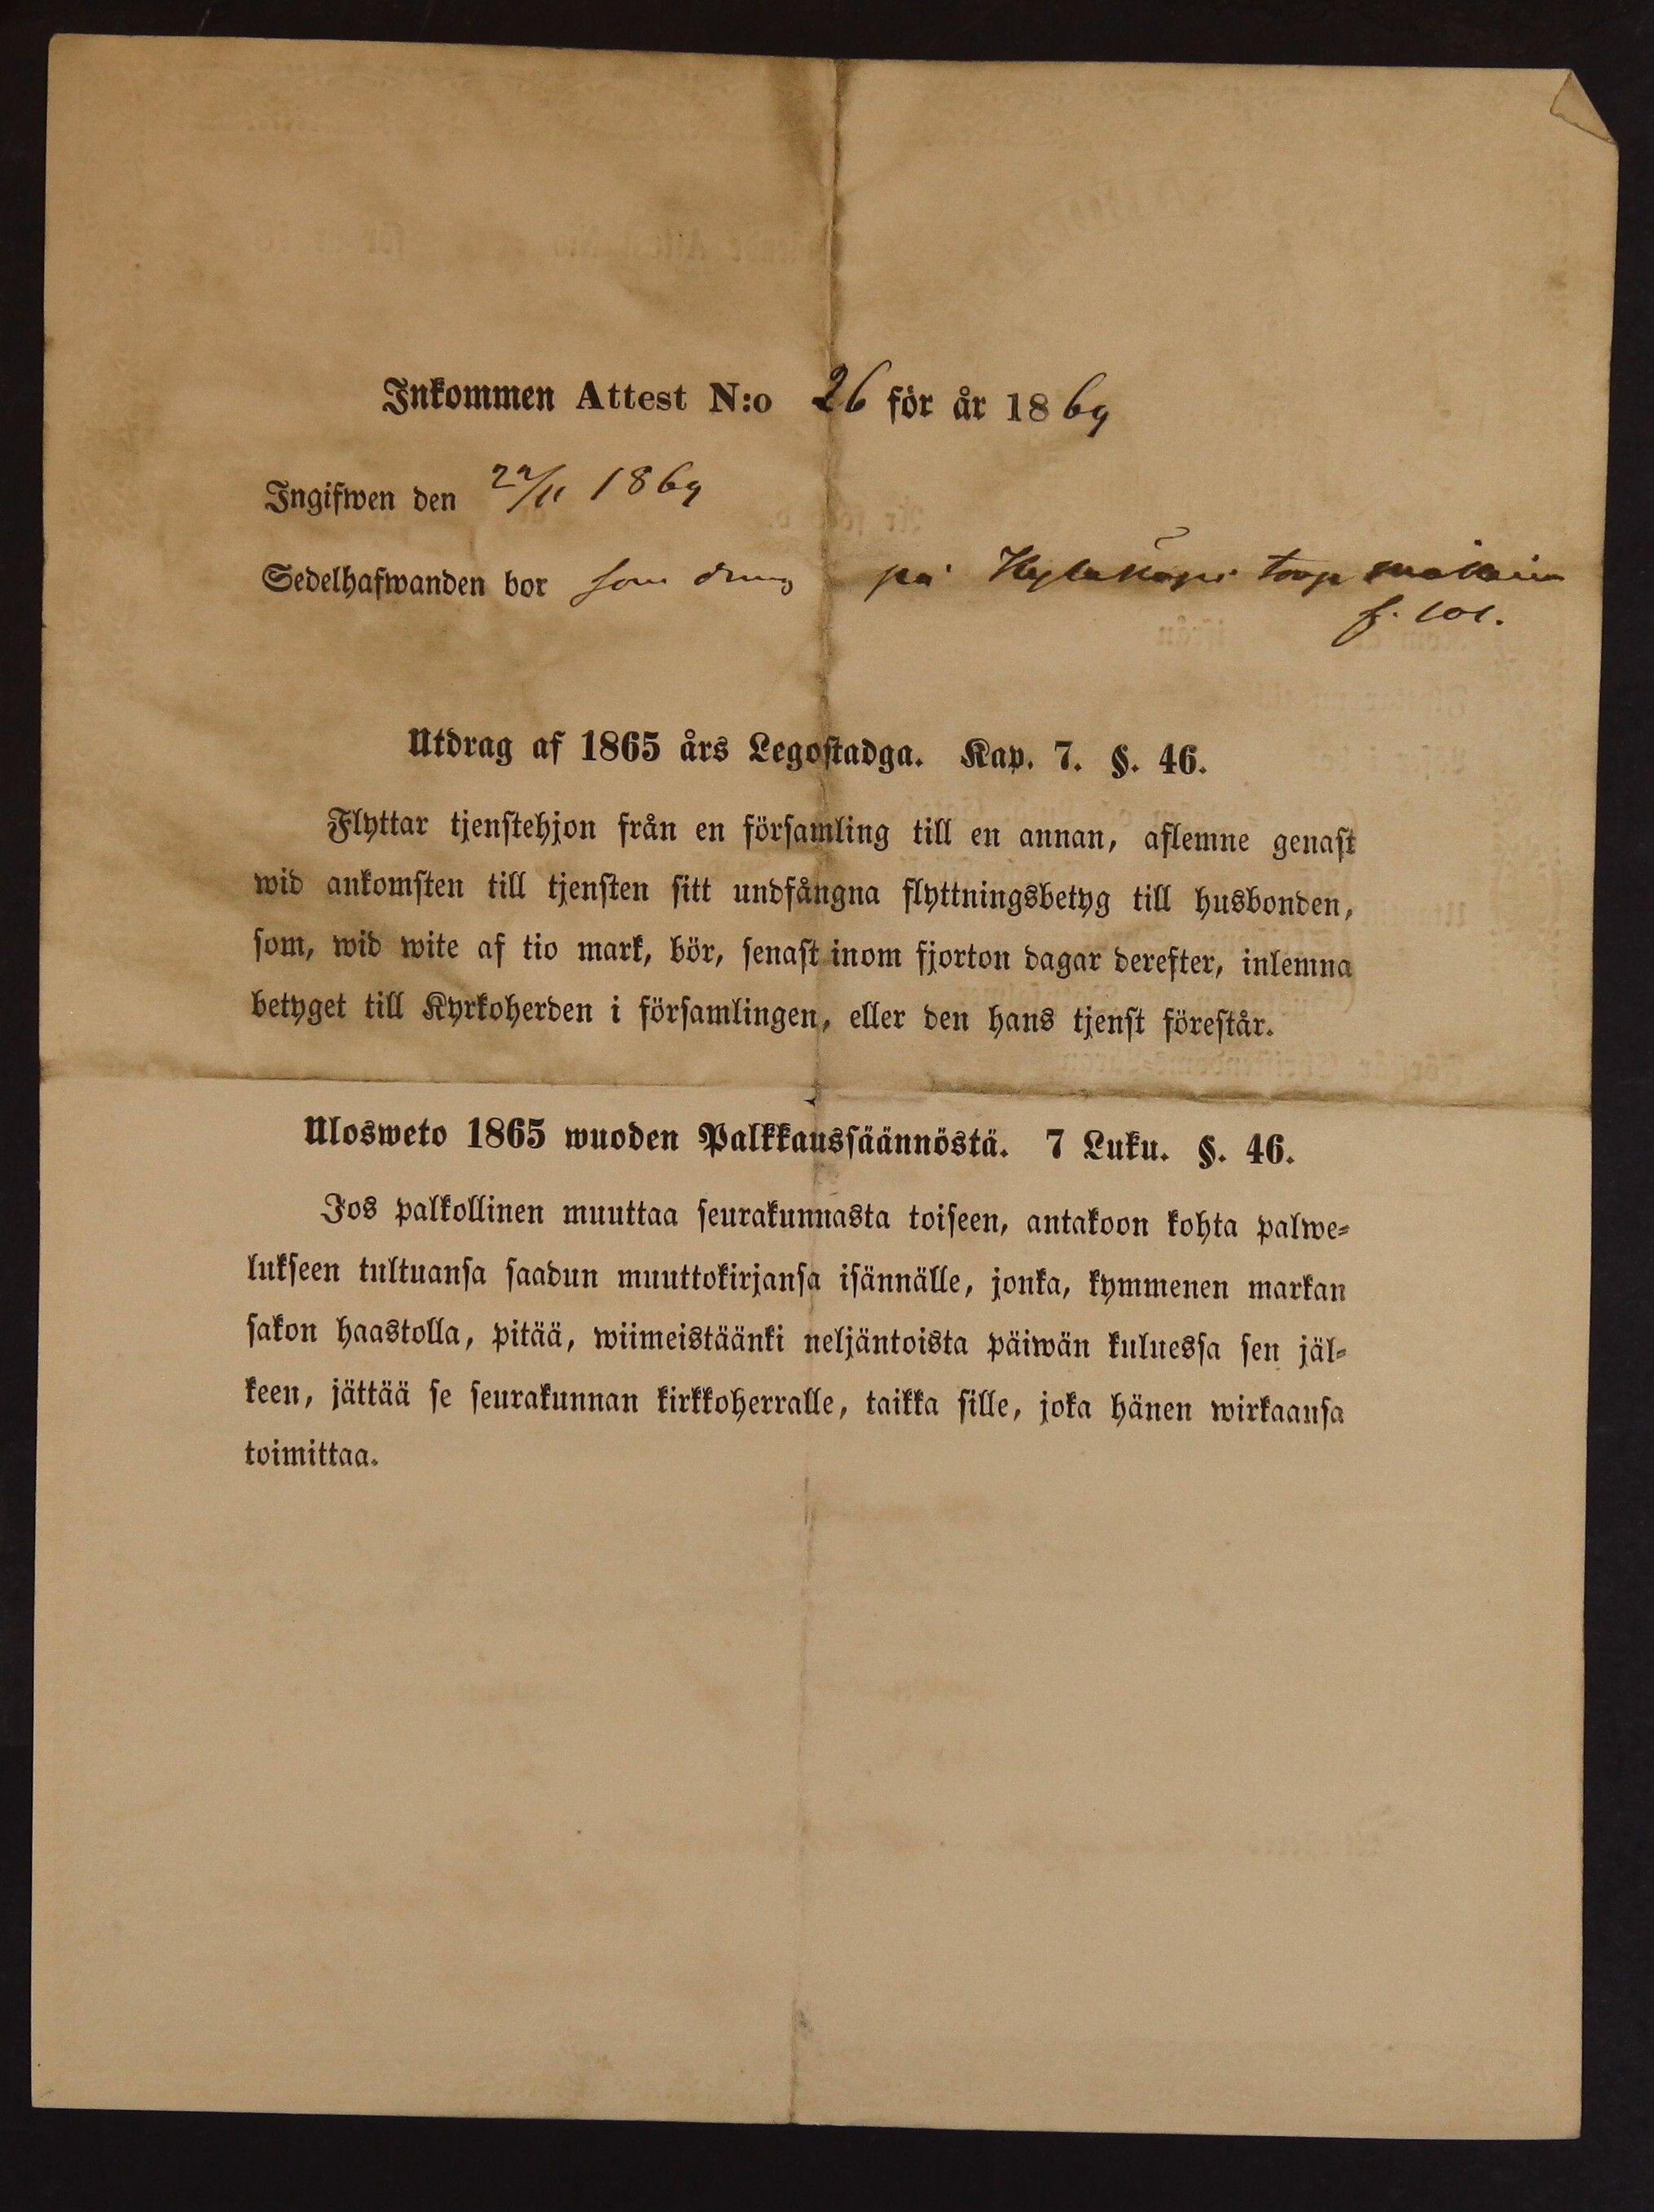 Inkommen Attest N:o 26 för år 1869
Ingifwen den 22/11 1869
Sedelhafwanden bor som dräng på torp
f. 101.
Utdrag af 1865 års Legostadga. Kap. 7. §. 46.
Flyttar tjenstehjon från en församling till en annan, aflemne genast
wid ankomsten till tjensten sitt undfångna flyttningsbetyg till husbonden,
som, wid wite af tio mark, bör, senast inom fjorton dagar derefter, inlemna
betyget till Kyrkoherden i församlingen, eller den hans tjenst förestår.
Ulosweto 1865 wuoden Palkkaussäännöstä. 7 Luku. §. 46.
Jos palkollinen muuttaa seurakunnasta toiseen, antakoon kohta palwe-
lukseen tultuansa saadun muuttokirjansa isännälle, jonka, kymmenen markan
sakon haastolla, pitää, wiimeistäänki neljäntoista päiwän kuluessa sen jäl-
keen, jättää se seurakunnan kirkkoherralle, taikka sille, joka hänen wirkaansa
toimittaa.